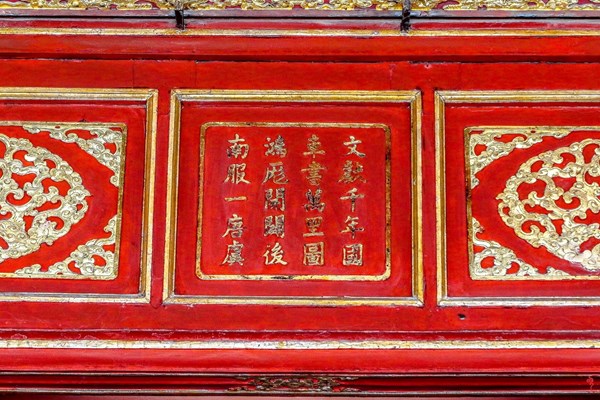 文獻千年國
車書萬里圖
鴻厖開闢後
南服一唐虞